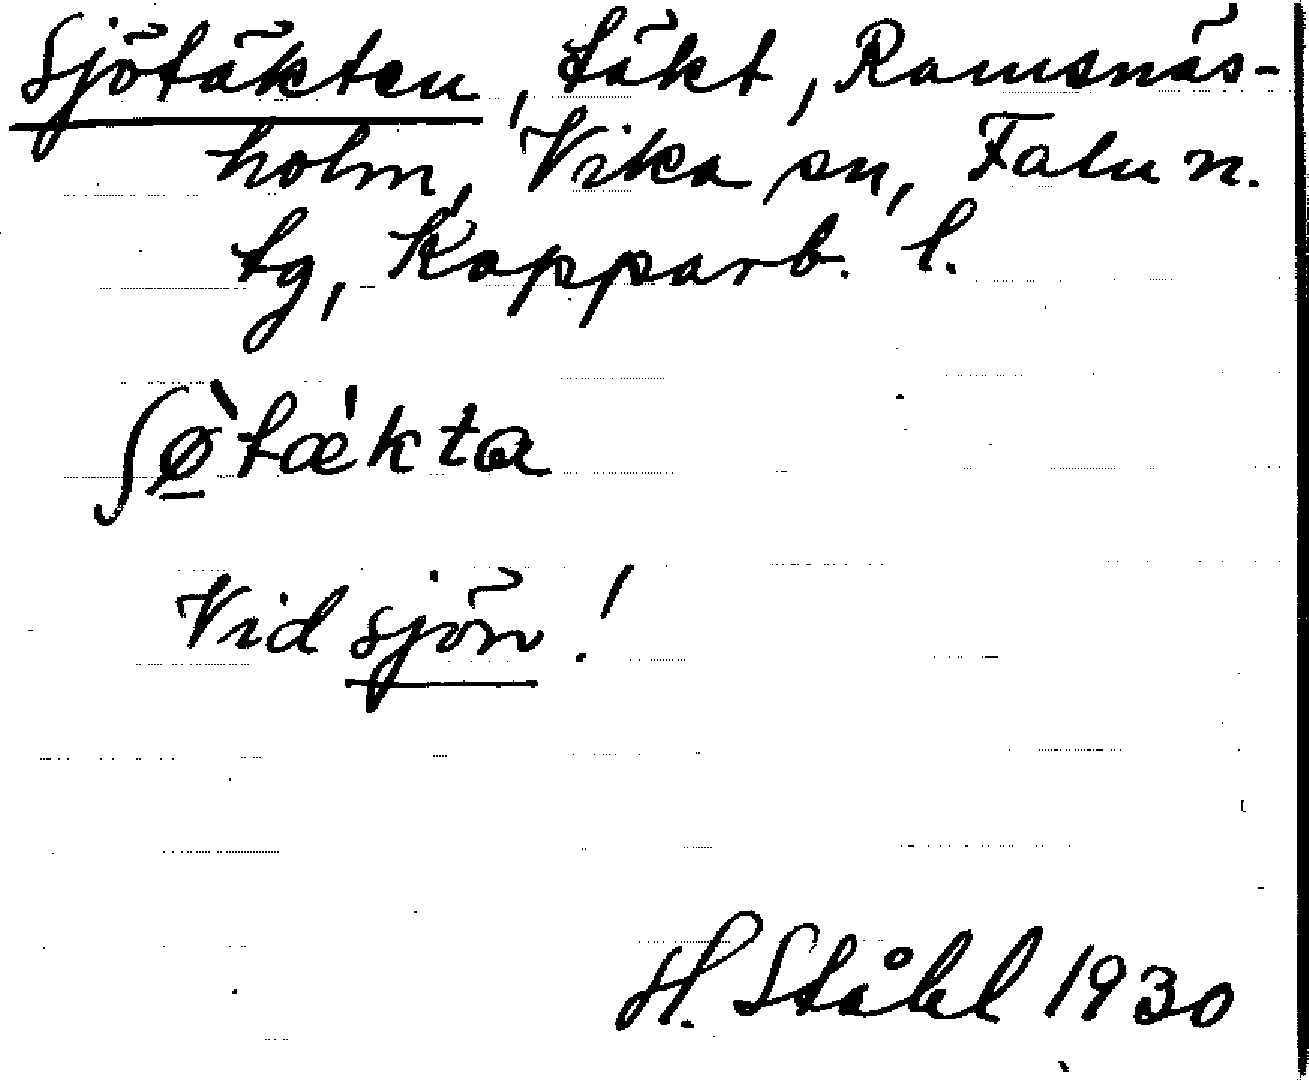 Sjötäkten, täkt, Ramsnäs-
holm, Vika sn, Falu n.
tg, Kopparb. l.
ʃø̱̀tæ'kta
Vid sjön!
H. Ståhl 1930